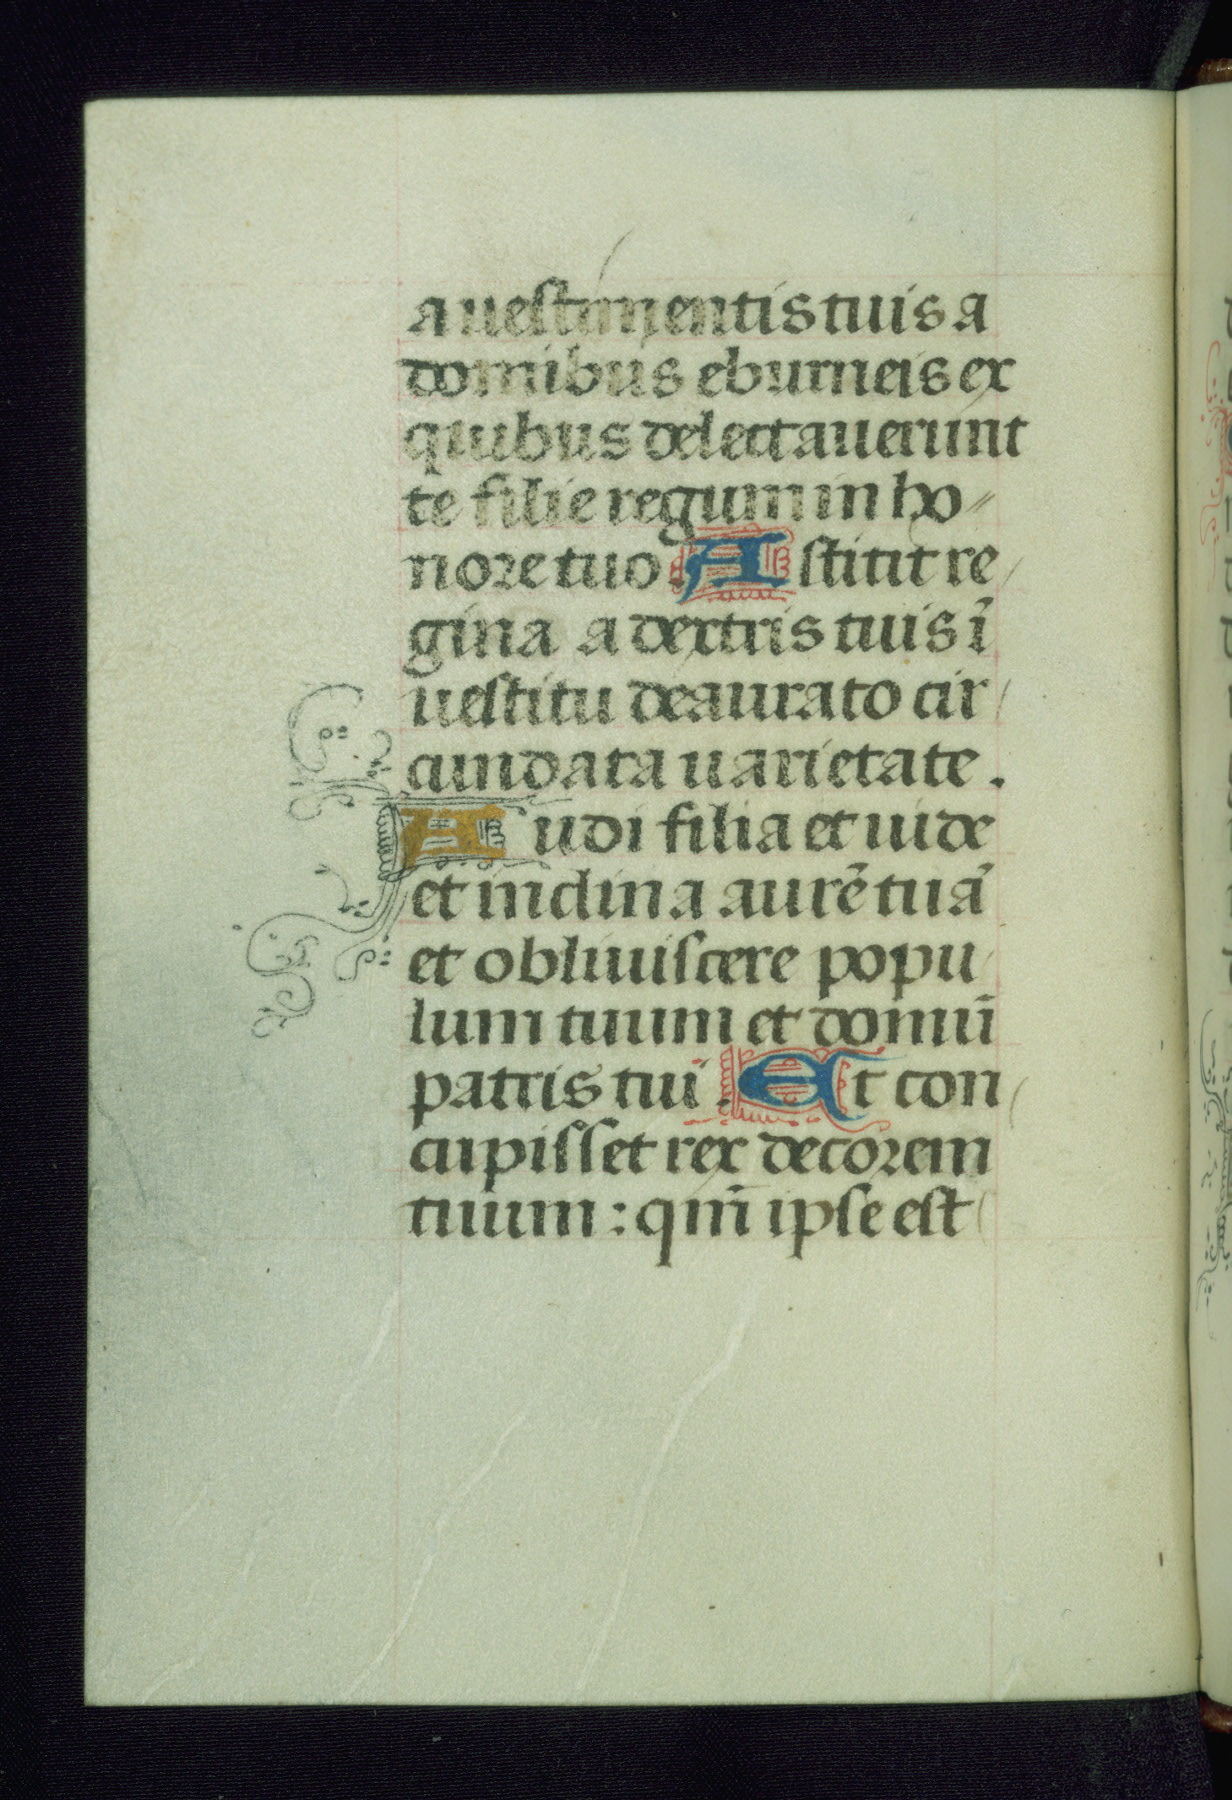 a uestimentis tuis a
domibus eburneis ex
quibus delectauerunt
te filie regum in ho
nore tuo. Astitit re
gina a dextris tuis ī
uestitu deaurato cir
cundata uarietate.
Audi filia et uide
et inclina aurē tuā
et obliuiscere popu
lum tuum et domū
patris tui. Et con
cupisset rex decorem
tuum: qm̄ ipse est